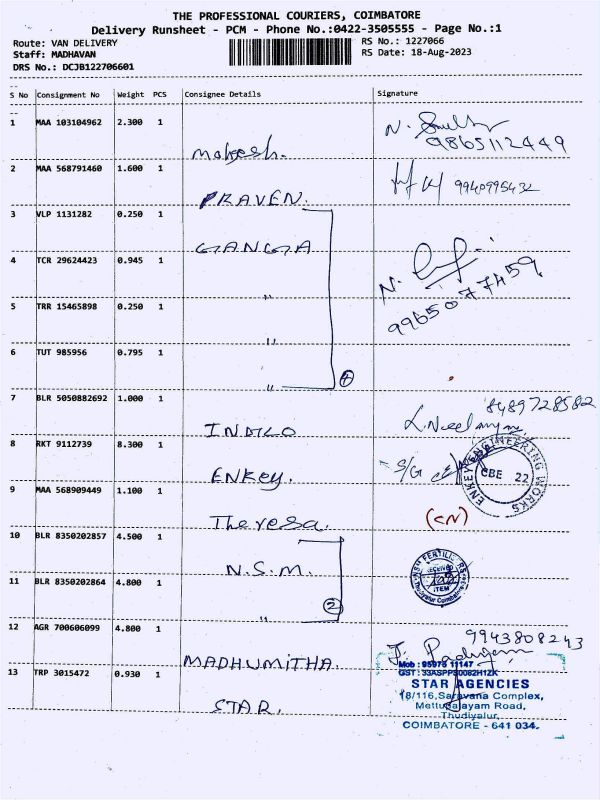 THE PROFESSIONAL COURIERS, COIMBATORE
Delivery Runsheet - PCM - Phone No.:0422-3505555 - Page No.:1
Route: VAN DELIVERY RS No.: 1227066
Staff: MADHAVAN RS Date: 18-Aug-2023
DRS No.: DCJB122706601
S No Consignment No Weight PCS Consignee Details Signature
1 MAA 103104962 2.300 1
Mahesh. 9865112449
2 MAA 568791460 1.600 1
PRAVEN. 9940995432
3 VLP 1131282 0.250 1
GANGA
4 TCR 29624423 0.945 1
" N.
5 TRR 15465898 0.250 1 9965077459
"
6 TUT 985956 0.795 1
" 4
7 BLR 5050882692 1.000 1 8489728582
INDICO
8 RKT 9112739 8.300 1 S/G
ENKEY. ENKEY ENGINEERING WORKS CBE 22
9 MAA 568909449 1.100 1
Theresa. (CN)
10 BLR 8350202857 4.500 1
N.S.M. NSH FERTILIZERS RECEIVED ITEM Thudiyalur Coimbatore
11 BLR 8350202864 4.800 1
" 2
12 AGR 700606099 4.800 1 9943808243
MADHUMITHA.
13 TRP 3015472 0.930 1 Mob : 95976 11147
GST : 33ASPPS0082H1ZK
STAR. STAR AGENCIES
18/116, Saravana Complex,
Mettupalayam Road,
Thudiyalur,
COIMBATORE - 641 034.